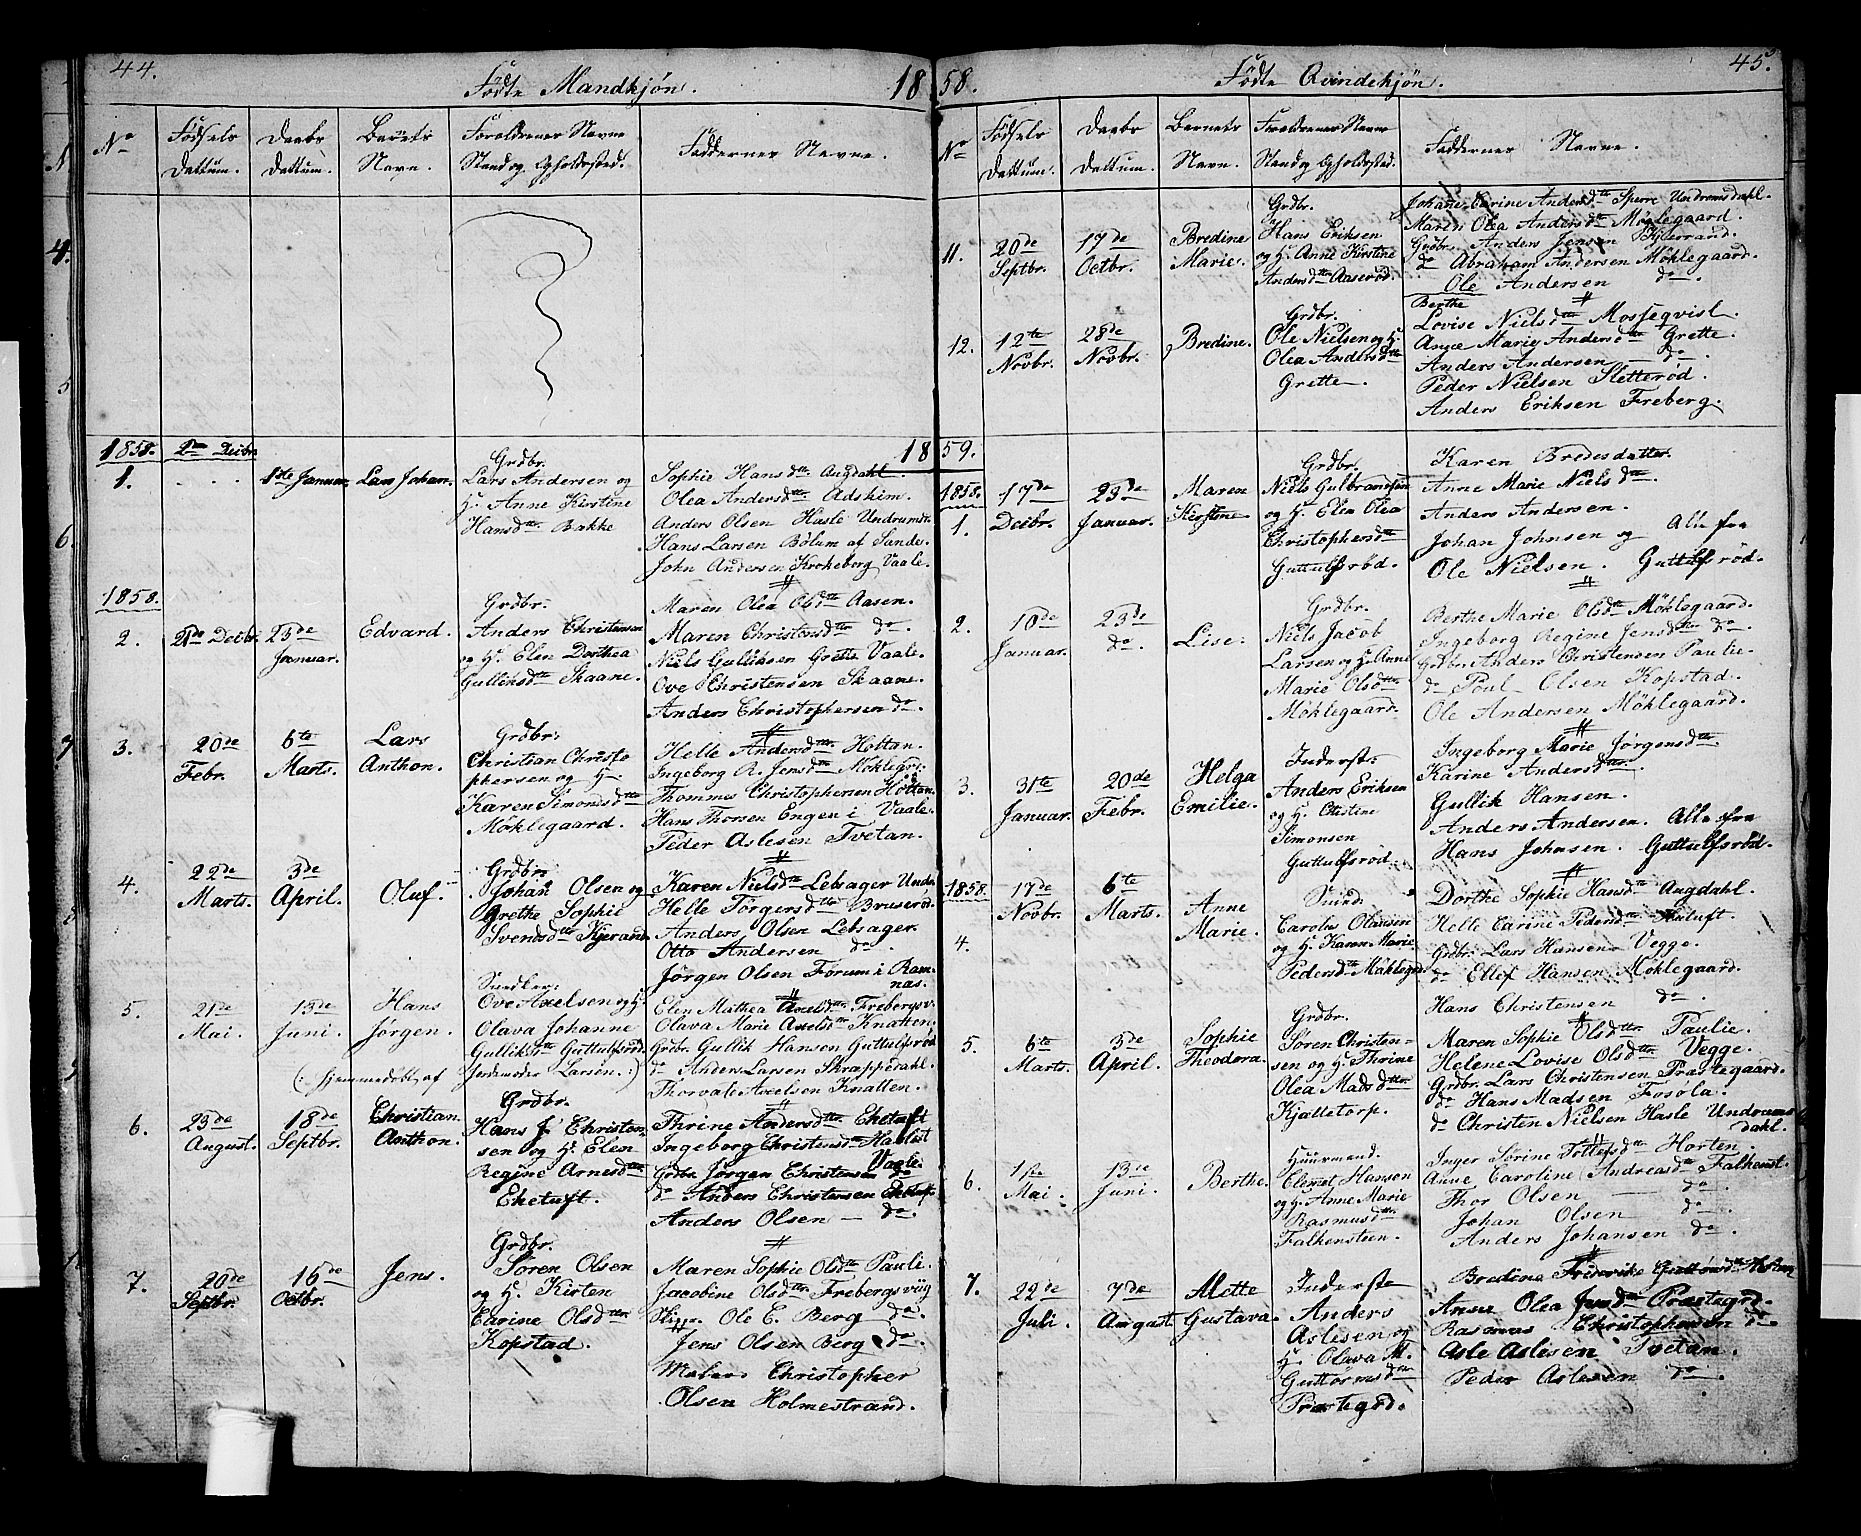 44.
Fødte Mandkjøn.
18
No
Fødsels Dattum.
Daabs Dattum.
Barnets Navn.
Forældrenes Navne Stand og Opholdssted.
Faddernes Navne.
1858.
1.
2den Decbr
1ste Januar
Lars Johan.
Grdbr.
Lars Andersen og
H. Anne Kirstine
Hansdttr. Bakke
Sophie Hansdttr. Augdahl.
Olea Andersdttr. Adskim.
Anders Olsen Hasle Undrumsd.
Hans Larsen Bølum af Sande.
John Andersen Krokeborg Vaale.
1858.
2.
21de Decbr.
23de Januar.
Edvard.
Grdbr.
Anders Christensen
og H. Elen Dorthea
Gulliksdttr Skaane.
Maren Olea Olsdttr Aasen.
Maren Christensdttr do
Niels Gulliksen Grette Vaale.
Ove Christensen Skaane.
Anders Christophersen do
3.
20de Febr.
6te Marts.
Lars Anthon.
Grdbr:
Christian Christo
phersen og H.
Karen Simonsdttr
Møklegaard.
Helle Andersdttr. Holtan.
Ingeborg R. Jensdttr Møklegrd:
Thommes Christophersen Holtan.
Hans Thorsen Engen i Vaale.
Peder Aslesen Tvetan.
4.
22de Marts.
3de April.
Oluf.
Grdbr:
Johan Olsen og
Grethe Sophie
Svendsdttr Kjerand.
Karen Nielsdttr Lebsager Undr.
Helle Jørgensdttr Bruserød.
Anders Olsen Lebsager.
Otto Andersen do.
Jørgen Olsen Forum i Ram-
nas.
5.
21de Mai.
13de Juni.
Hans Jørgen.
Ove Axelsen og H.
Olava Johanne
Gulliksdttr Guttulfsrød.
(: hjemmedøbt af Jordemoder Larsen. :)
Elen Mathea Axelsdttr. Frebergsv.
Olava Marie Axelsdttr Knatten.
Grdbr. Gullik Hansen Guttulfsrød
do Anders Larsen Skrappedahl.
Thorvald Axelsen Knatten.
6.
23de August.
18de Septbr.
Christian Anthon.
Grdbr.
Hans J. Christen-
sen og H. Elen
Regine Arnesdttr
Eketuft.
Thrine Andersdttr Eketuft
Ingeborg Christensdttr
Vaale.
Grdbr. Jørgen Christensen do
do Anders Christensen Eketuft.
Anders Olsen — do
7.
20de Septbr.
16de Octbr.
Jens.
Grdbr.
Søren Olsen
og H. Kirten
Carine Olsdttr.
Kopstad.
Maren Sophie Olsdttr Pauli.
Jacobine Olsdttr. Frebergsviig
Skipp. Ole C. Berg do
Jens Olsen Berg do
Maler Christopher
Olsen Holmestrand.
58.
Fødte Qvindekjøn.
45.
No
Fødsels Dattum.
Daabs Dattum.
Barnets Navn.
Forældrenes Navne Stand og Opholdssted.
Faddernes Navne.
11.
20de Septbr.
17de Octbr.
Bredine Marie.
Grdbr.
Hans Eriksen
og H. Anne Kirstine
Andersdttr Aaserød.
Johanne Carine Andersdttr Sperre Undrumsdahl.
Maren Olea Andersdttr Møklegaard.
Grdbr. Anders Jensen Kjerrand.
do Abraham Andersen Møklegaard.
Ole Andersen do.
12.
12te Novbr.
28de Novbr.
Bredine.
Grdbr.
Ole Nielsen og H.
Olea Andersdttr
Grette.
Berthe
Lovise Nielsdttr Mosseqvist.
Anne Marie Andersdttr Grette.
Anders Andersen — do.
Peder Nielsen Sletterød.
Anders Eriksen Freberg.
1859.
1858.
1.
17de Decbr.
23de Januar.
Maren Kirstine
Grdbr.
Niels Gulbrandsen
og H. Elen Olea
Christophersdttr
Guttulfsrød.
Karen Bredesdatter.
Anne Marie Nielsdttr.
Anders Andersen.
Johan Johnsen og Alle fra
Ole Nielsen. Guttulfsrød.
2.
10de Januar.
23de do.
Lise.
Grdbr.
Niels Jacob
Larsen og H. Anne
Marie Olsdttr
Møklegaard.
Berthe Marie Olsdttr Møklegaard.
Ingeborg Regine Jensdttr do
Grdbr. Anders Christensen Paulie.
do Poul Olsen Kopstad.
Ole Andersen Møklegaard.
3.
31te Januar.
20de Febr.
Helga Emilie.
Inderst:
Anders Eriksen
og H. Christine
Simonsen
Guttulfsrød.
Ingeborg Marie Jørgensdttr.
Karine Andersdttr
Gullik Hansen.
Anders Andersen. Alle fra
Hans Johnsen. Guttulfsrød.
1858.
4.
17de Novbr.
6te Marts.
Anne Marie.
Carolus Olausen
og H. Karen Marie
Pedersdttr Møklegrd
Dorthe Sophie Hansdttr Augdahl.
Helle Carine Pedersdttr
Grdbr. Lars Hansen Vegge.
do Ellef Hansen Møklegaard.
Hans Christensen do.
5.
6te Marts.
3de April.
Sophie Theodora.
Grdbr.
Søren Christen-
sen og H. Thrine
Olea Madsdttr.
Kjølletorp.
Maren Sophie Olsdttr. Paulie.
Helene Lovise Olsdttr. Vegge.
Grdbr. Lars Christensen Præstegaard.
do Hans Madsen Fosøla.
do Christen Nielsen Hasle Undrums
dahl.
6.
1ste Mai.
13de Juni.
Berthe.
Huusmand.
Clemet Hansen
og H. Anne Marie
Rasmusdttr.
Falkensteen.
Inger Sorine Tollefsdttr Horten.
Anne Caroline Andreasdttr Falkenst.
Thor Olsen — do
Johan Olsen do
Anders Johansen do
7.
22de Juli.
7de August
Mette Gustava.
Inderste
Anders
Aslesen og
H. Olava M.
Guttormsdttr
Præstegrd.
Bredine Friderike Guttormsdttr
Anne Olea Jensdttr Præstegrd.
Rasmus Christophersen do
Asle Aslesen Tvetan.
Peder Aslesen do